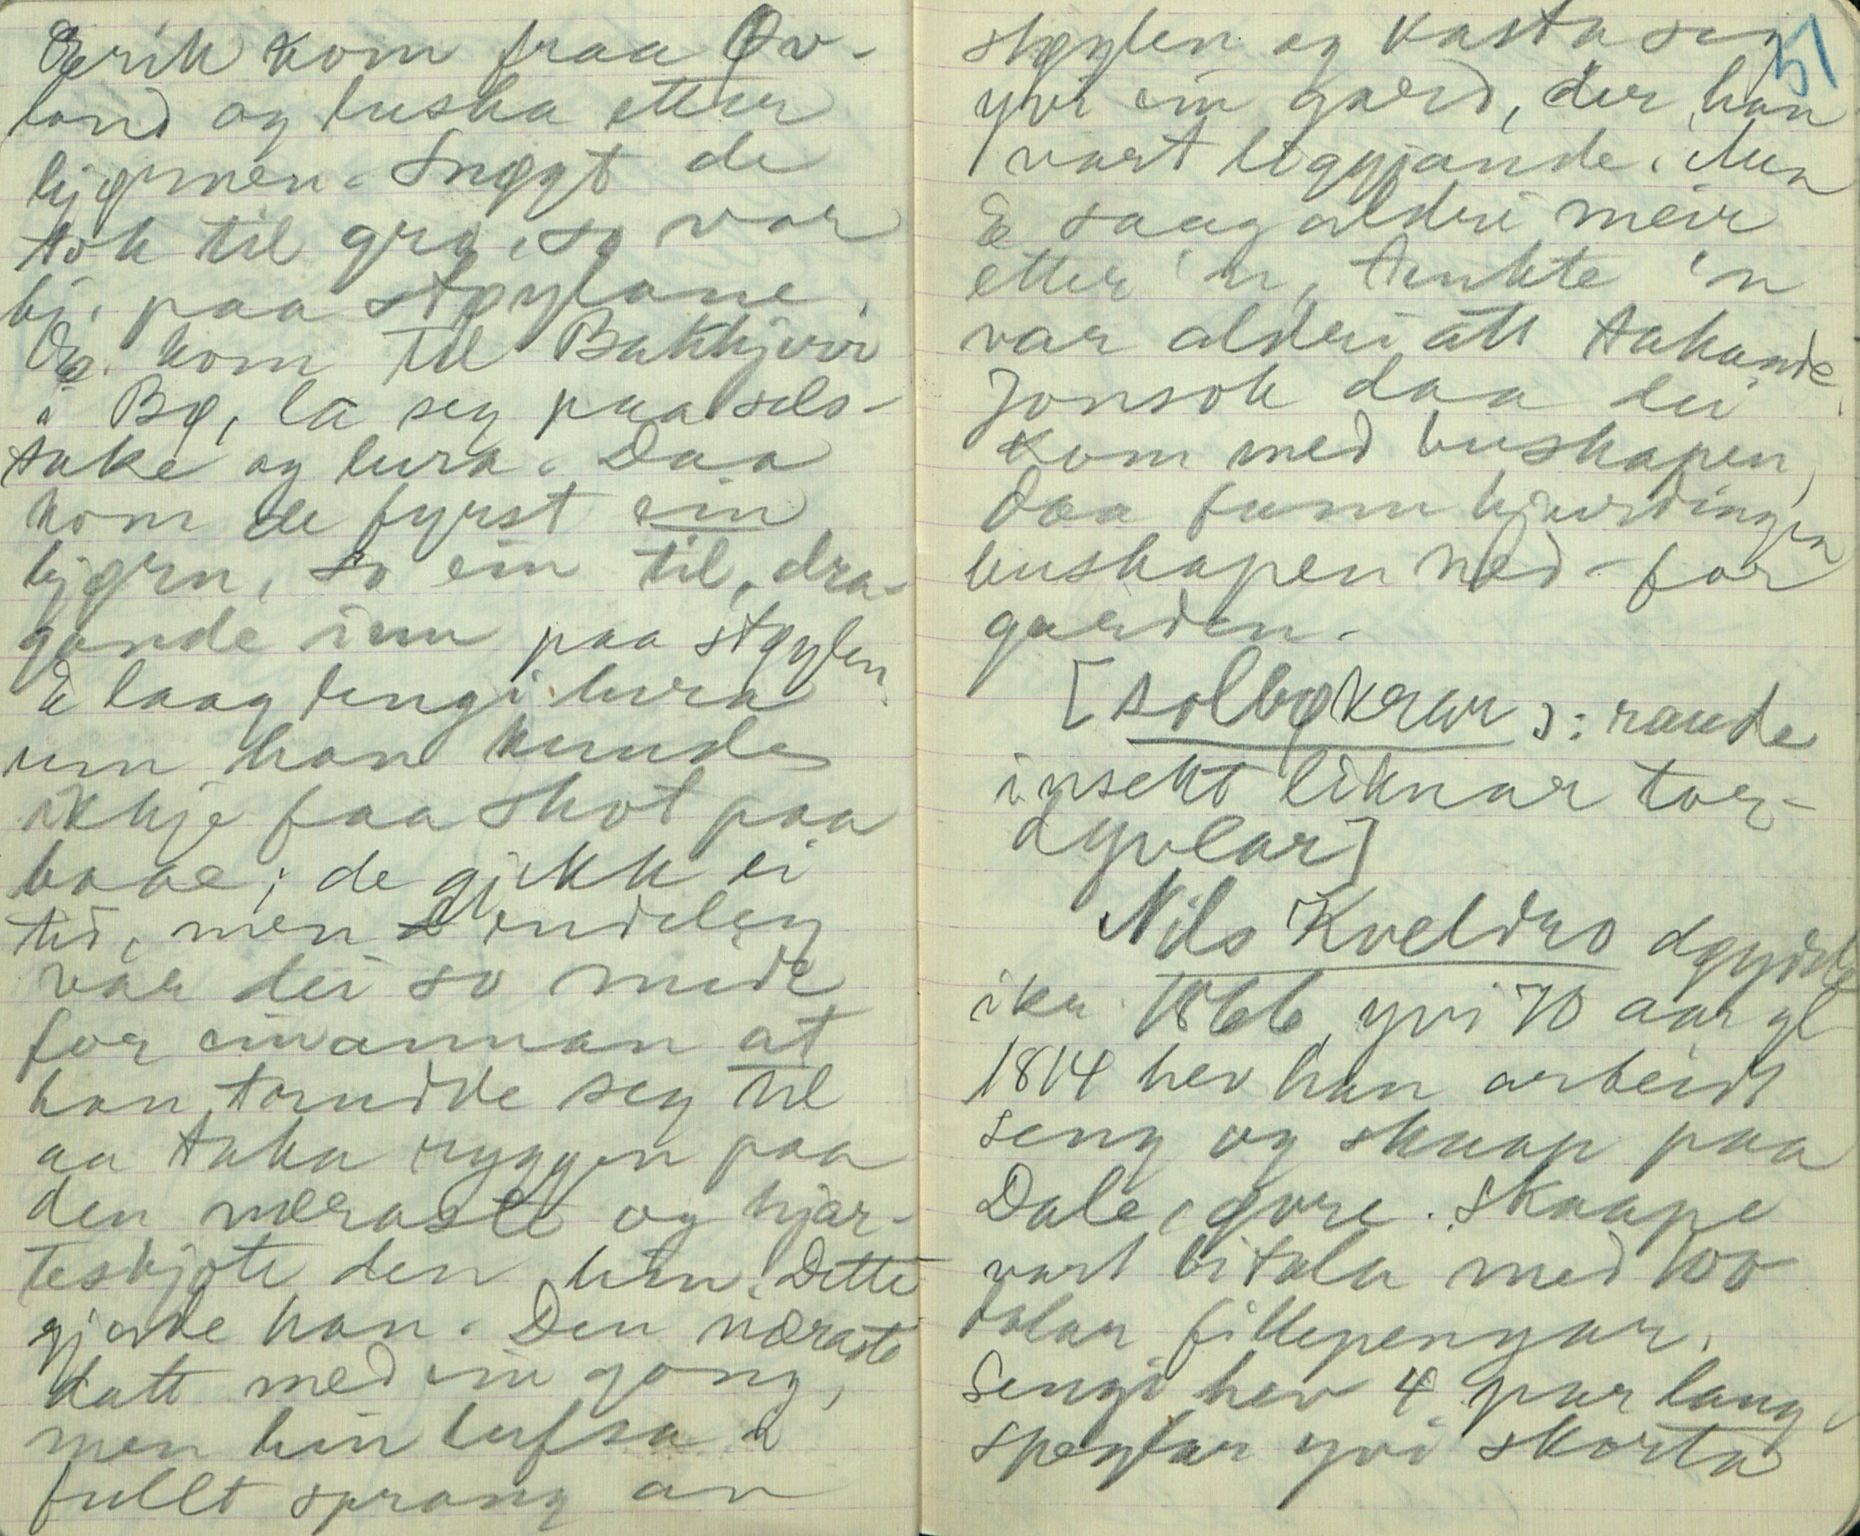 Eerik kom fraa Øv-
land og luska etter
bjørnen. Snøgt de
tok til grø, so var
bj. paa støylane.
Ee. kom til Bakkhjuvi
i Bø, la seg paa sels-
take og lura. Daa
kom de fyrst ein
bjørn, so ein til, dra-
gande inn paa støylen
E laag lengi lura
um han kunde
ikkje faa skot paa
baae; de gjekk ei
tid, men endeleg
var dei so midt
for einannan at
han trudde seg til
aa taka ryggen paa
den næraste og hjar-
teskjote den hin. Dette
gjorde han. Den næraste
datt med ein gong,
men hin lufsa i
fullt sprang av
støylen og kasta seg
51
yvi ein gard, der han
vart liggjande. Men
E saag aldri meir
etter 'n, tenkte 'n
var aldri att takande
Jonsok daa dei
kom med buskapen,
daa funn hjuringen
buskapen ned-for
garden.
[solbøkrar ɔ: raude
insekt liknar tor-
dyvlar]
Nils Kveldro døydde
ikr. 1866 yvi 70 aar gl
1814 hev han arbeidt
seng og skaap paa
Dale, øvre. Skaape
vart bitala med 100
dalar fillepengar.
Sengi hev 4 par lang
speglar yvi skorta